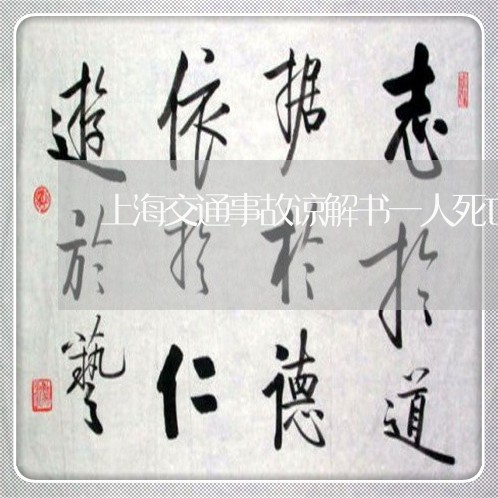 志於道
据於德
依於仁
遊於藝
上海交通事故谅解书一人死